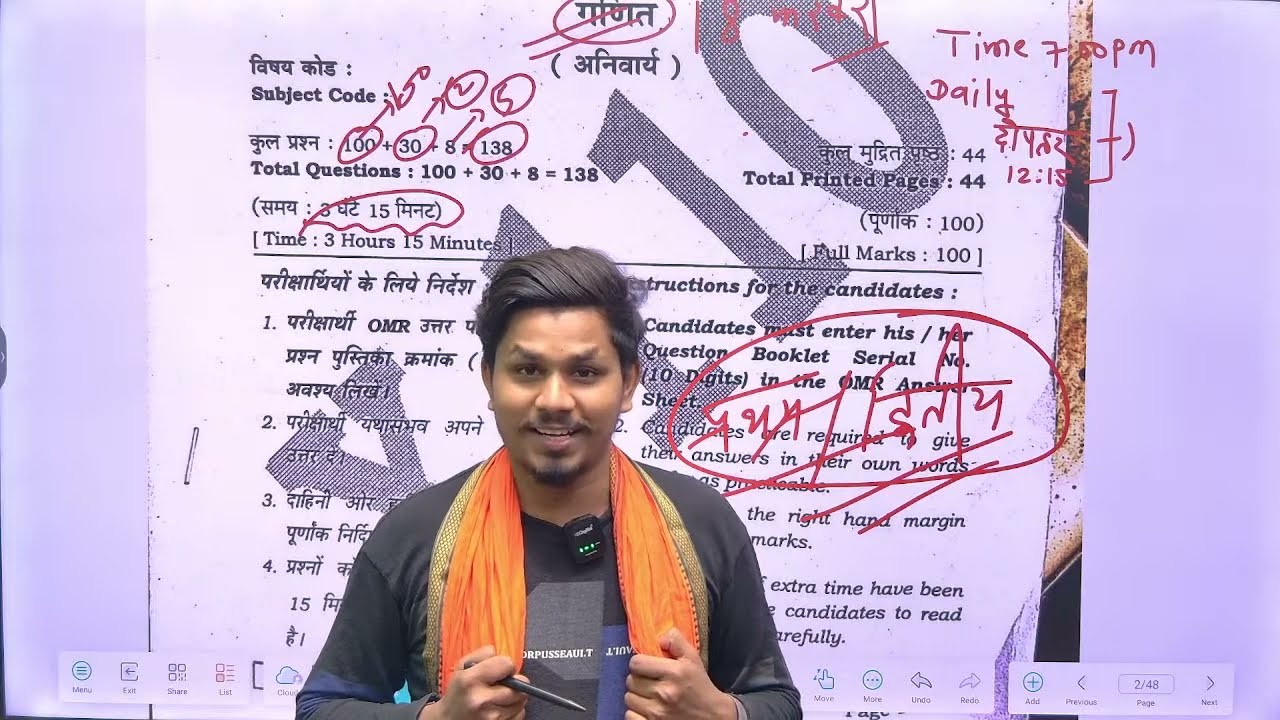 गणित
( अनिवार्य )
Time 7:00pm
Daily
दोपहर
12:15
विषय कोड :
Subject Code :
कुल प्रश्न : 100 + 30 + 8 = 138
Total Questions : 100 + 30 + 8 = 138
कुल मुद्रित पृष्ठ : 44
Total Printed Pages : 44
(समय : 3 घंटे 15 मिनट)
[ Time : 3 Hours 15 Minutes ]
(पूर्णांक : 100)
[ Full Marks : 100 ]
परीक्षार्थियों के लिये निर्देश
structions for the candidates :
1. परीक्षार्थी OMR उत्तर
प्रश्न पुस्तिका क्रमांक (
अवश्य लिखें।
Candidates must enter his / her
Question Booklet Serial No.
(10 Digits) in the OMR Answer
Sheet.
प्रथम द्वितीय
2. परीक्षार्थी यथासंभव अपने
उत्तर दें।
2. Candidates are required to give
their answers in their own words
as practicable.
3. दाहिनी ओर
पूर्णांक
the right hand margin
marks.
4. प्रश्नों को
15
है।
extra time have been
candidates to read
carefully.
ORPUSSEAULT
Menu
Exit
Share
List
Cloud
Move
More
Undo
Redo
Add
Previous
2/48
Page
Next
Page